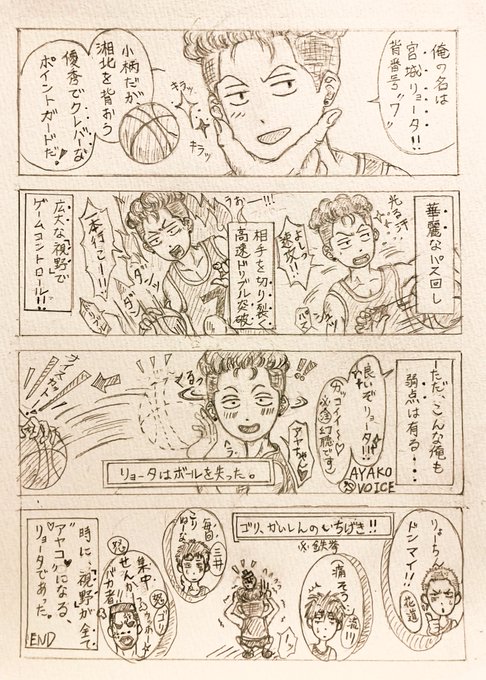 俺の名は
宮城リョータ!!
背番号"7"
小柄だが
湘北を背おう
優秀でクレバーな
ポイントガードだ。
キラッ
キラッ
華麗なパス回し
光る汗
よしっ
速攻!!
パス
うおー!!!
相手を切り裂く
高速ドリブル突破
一本行こー!!!
ダン
ダン
広大な"視野"で
ゲームコントロール!!
ーただ、こんな俺も
弱点は有る・・・
良いぞリョータ!!
※幻聴です
AYAKO
VOICE
アヤちゃん♡
くるっ
ヘラ
ナイスカット
リョータはボールを失った。
りょーちん
ドンマイ!!
花道
ゴリ、かいしんのいちげき!!
※鉄拳
痛そっ
流川
毎回、
こりねーな
三井
集中
せんか
バカ者
怒ゴリ
時に、"視野"が全て
"アヤコ♡"になる、
リョータであった。
END